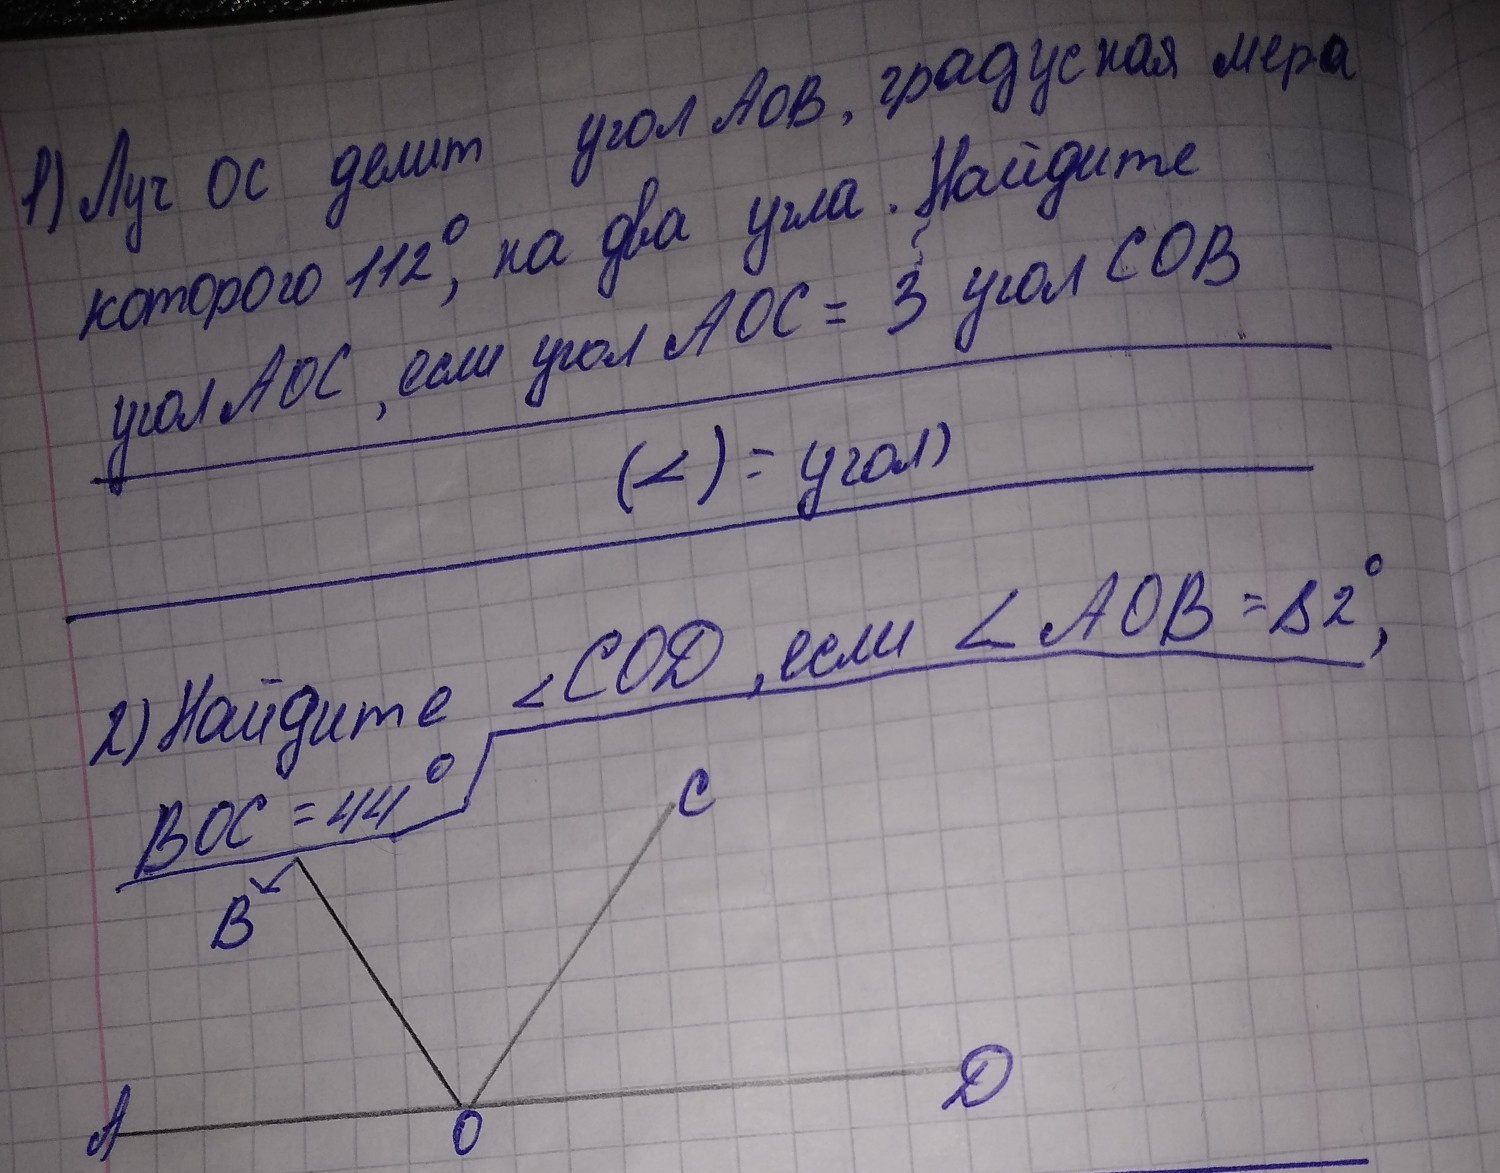 1) Луч ОС делит угол АОВ, градусная мера
которого 112°, на два угла. Найдите
угол АОС, если угол АОС = 3 угол СОВ
(<) = угол)
2) Найдите <COD, если < AOB = 82°,
BOC = 44°
C
B
A
O
D